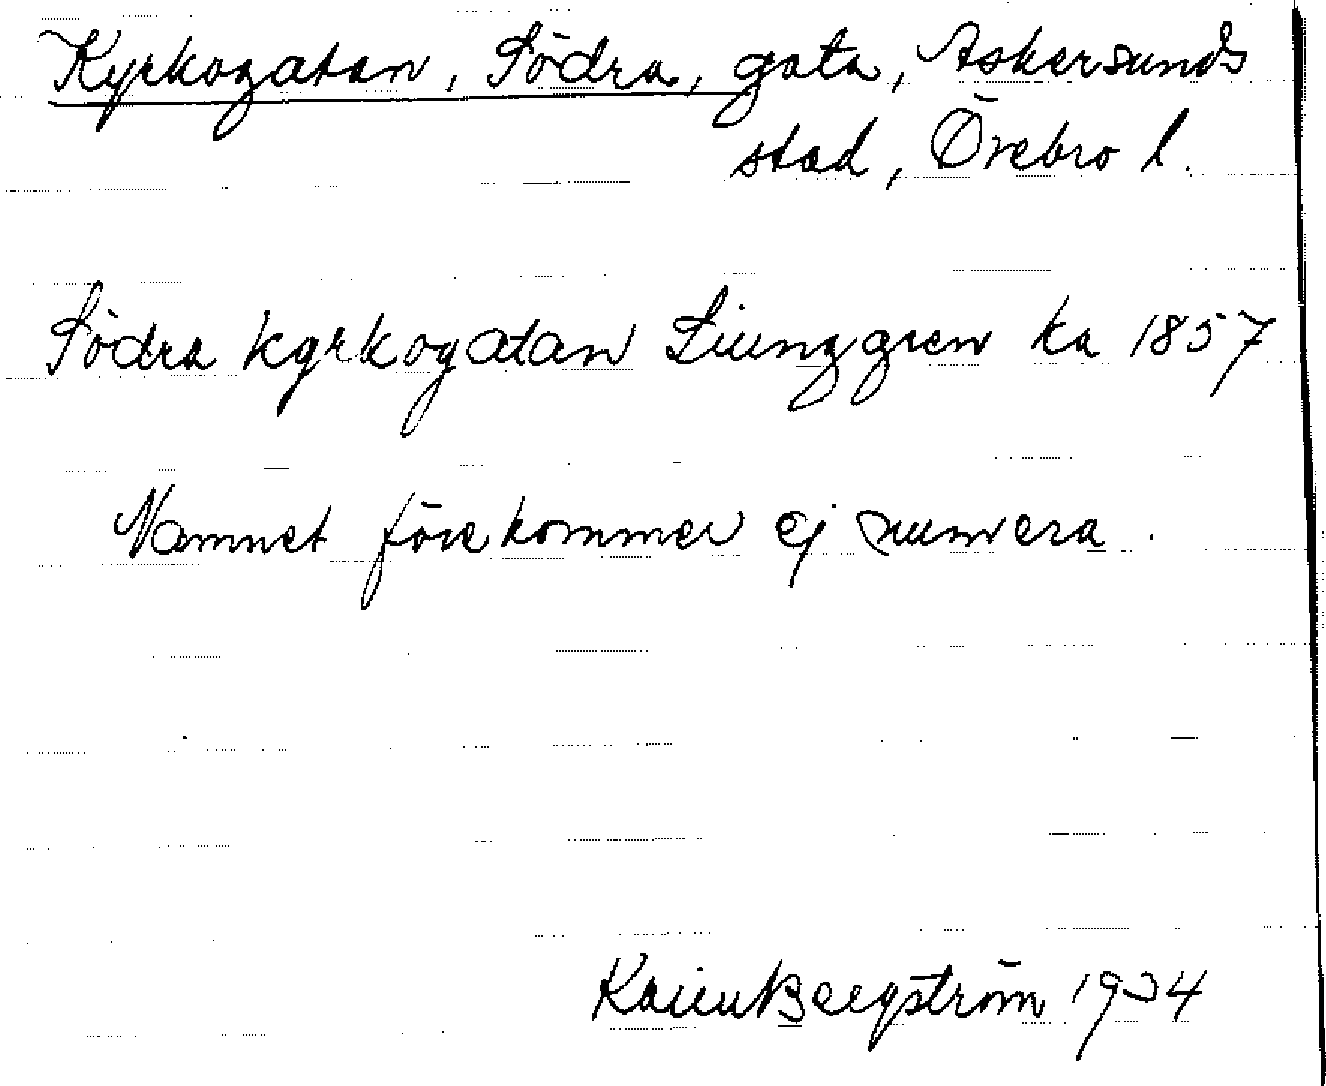 Kyrkogatan, Södra, gata, Askersunds
stad, Örebro l.
Södra kyrkogatan Ljunggren ka 1857
Namnet förekommer ej numera.
Karin Bergström 1934